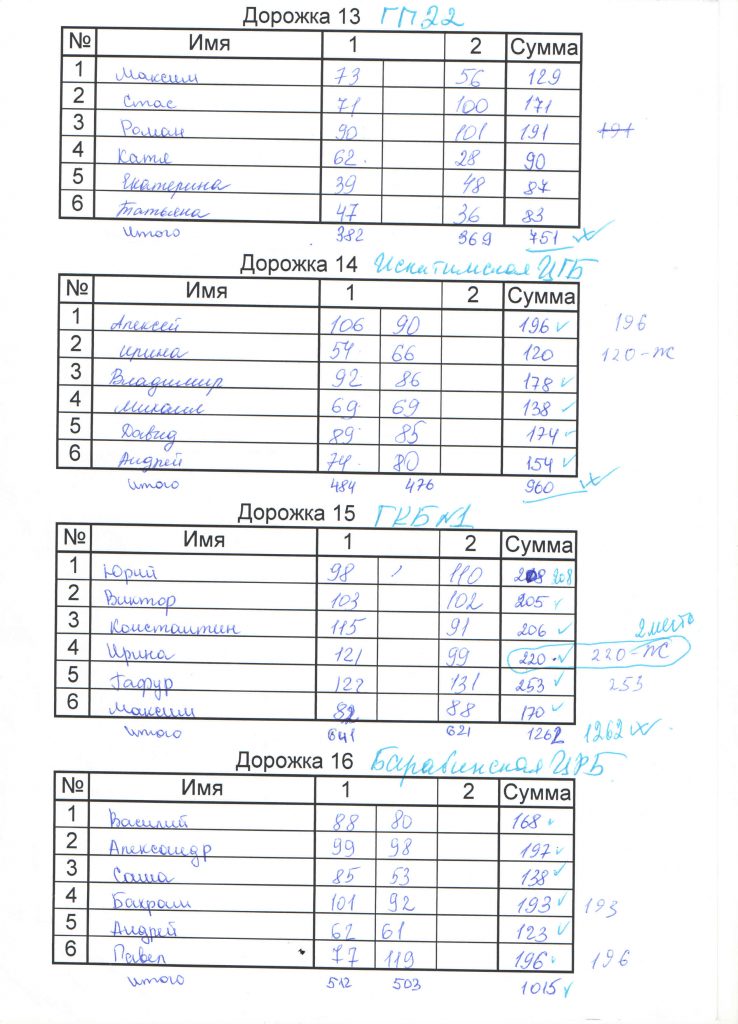 Дорожка 13 ГП 22
№ Имя 1 2 Сумма
1 Максим 73 56 129
2 Стас 71 100 171
3 Роман 90 101 191 191
4 Катя 62 28 90
5 Екатерина 39 48 87
6 Татьяна 47 36 83
итого 382 369 751
Дорожка 14 Искитимская ЦГБ
№ Имя 1 2 Сумма
1 Алексей 106 90 196 196
2 Ирина 54 66 120 120-Ж
3 Владимир 92 86 178
4 Михаил 69 69 138
5 Давид 89 85 174
6 Андрей 74 80 154
итого 484 476 960
Дорожка 15 ГКБ №1
№ Имя 1 2 Сумма
1 Юрий 98 110 208 208
2 Виктор 103 102 205
3 Константин 115 91 206 2 место
4 Ирина 121 99 220 220-Ж
5 Гафур 122 131 253 253
6 Максим 82 88 170
итого 641 621 1262 1262
Дорожка 16 Барабинская ЦРБ
№ Имя 1 2 Сумма
1 Василий 88 80 168
2 Александр 99 98 197
3 Саша 85 53 138
4 Бахрам 101 92 193 193
5 Андрей 62 61 123
6 Павел 77 119 196 196
итого 512 503 1015